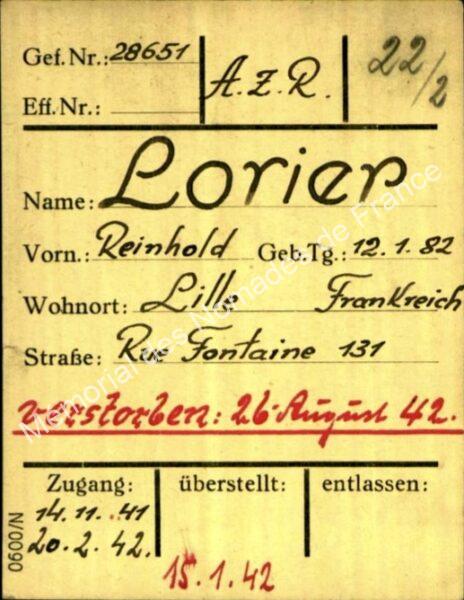 Gef. Nr.: 28651
A.Z.R.
22/2
Eff. Nr.:
Name: Lorier
Vorn.: Reinhold Geb. Tg.: 12.1.82
Wohnort: Lille Frankreich
Straße: Rue Fontaine 131
verstorben: 26. August 42.
Zugang: überstellt: entlassen:
14.11.41
20.2.42.
15.1.42
N/0090
Memorial des Nomades de France